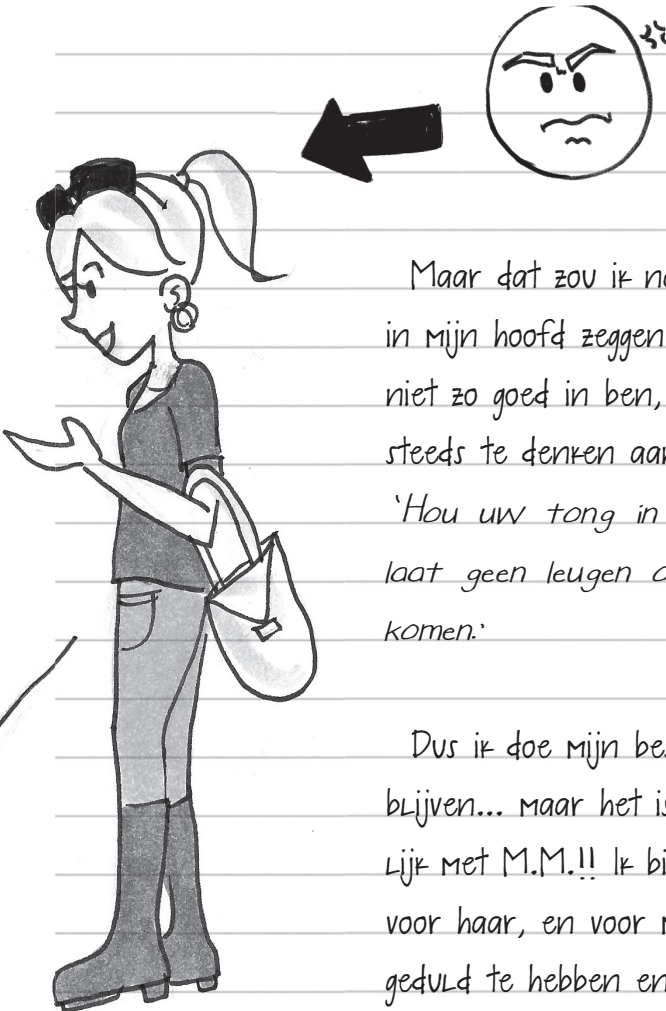 Maar dat zou ik
in mijn hoofd zeggen
niet zo goed in ben,
steeds te denken
'Hou uw tong in
laat geen leugen
komen.'
Dus ik doe mijn
blijven... maar het is
lijk met M.M.!! Ik
voor haar, en voor
geduld te hebben en